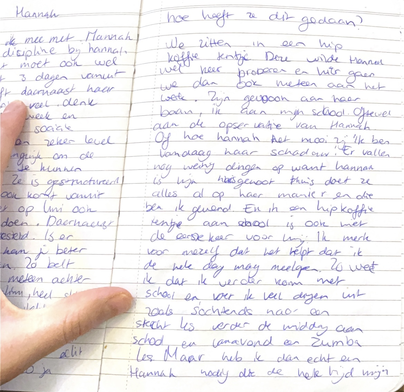 Hannah
ik mee met Hannah
discipline bij hannah.
moet ook wel
3 dagen vanuit
daarnaast haar
veel denk
werk en
sociale
en zeker level
om de
te kunnen
Ze is gestructureerd
ook komt vanuit
op Uni ook
doen. Daarnaast
Is er
kan j beter
Zo belt
meteen achter
Uni, heel d
hoe heeft ze dit gedaan?
We zitten in een hip
koffie tentje Deze wilde Hannah
wel keer proberen en hier gaan
we dan ook meteen aan het
werk. Zijn gewoon aan haar
baan, ik aan mijn school
aan de observatie van Hannah
Of hoe hannah het mooi zei Ik ben
vandaag haar schaduw. Er vallen
nog weinig dingen op want hannah
is mijn huisgenoot thuis doet ze
alles al op haar manier en die
ben ik gewend En in een hip koffie
tentje aan school is ook niet
de eerste keer voor mij. Ik merk
voor mezelf dat het helpt dat ik
de hele dag mag meelopen. Zo weet
ik dat ik verder kom met
school en voer ik veel dingen uit
zoals sochtends naar een
les verder de middag aan
school en vanavond een Zumba
les Maar heb ik dan echt een
Hannah nodig die de hele tijd mijn